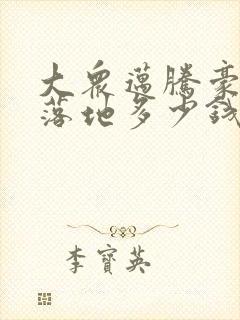 大衆邁騰豪
落地多少錢
李寶英